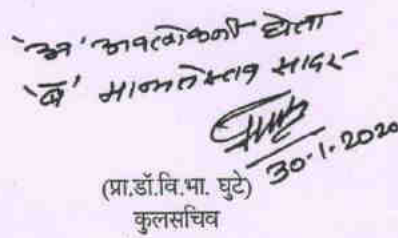 'अ' अवलोकनी घेतला
'ब' मान्यतेस्तव सादर
30.1.2020
(प्रा.डॉ.वि.भा. घुटे)
कुलसचिव